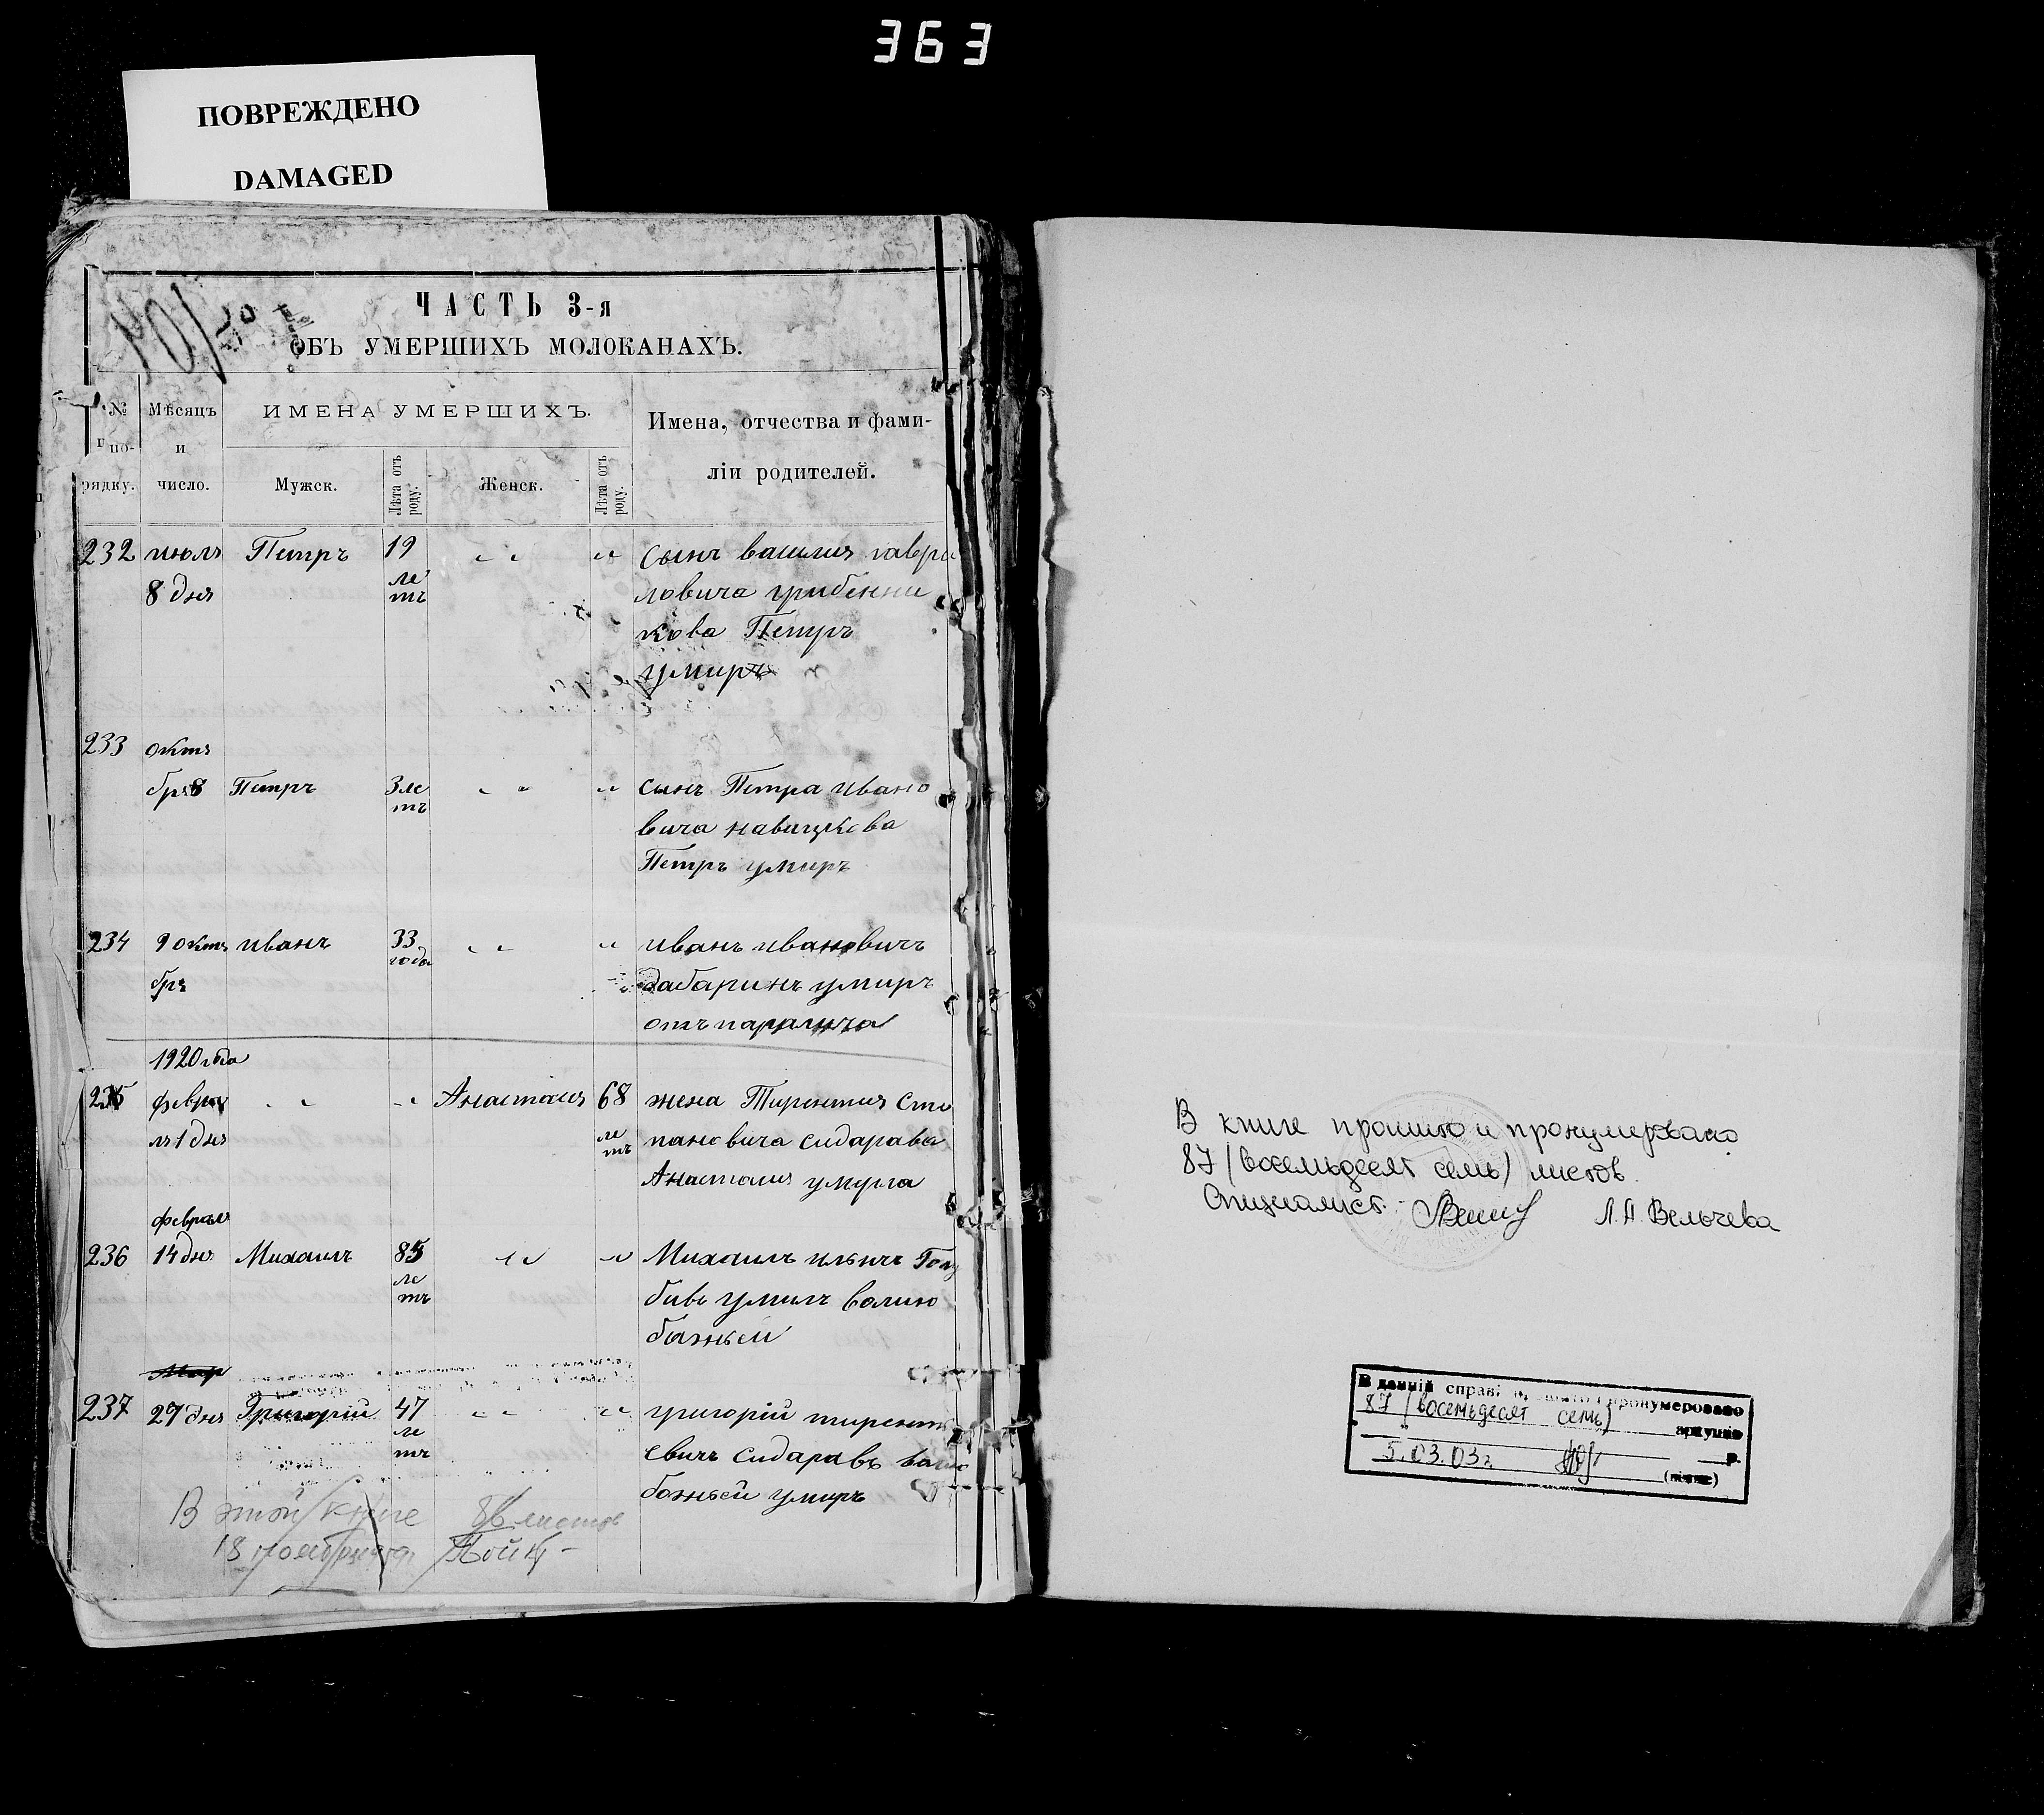 363
ПОВРЕЖДЕНО
DAMAGED
ЧАСТЬ 3-я
ОБЪ УМЕРШИХЪ МОЛОКАНАХЪ.
№ по-рядку.
Мѣсяцъ и число.
ИМЕНА УМЕРШИХЪ.
Мужск.
Лѣта отъ роду.
Женск.
Лѣта отъ роду.
Имена, отчества и фами-
ліи родителей.
232 июля Петръ 19 сынъ василия гаври
8 дня ле ловича грибенни
тъ кова Петръ
умиръ
233 октя
бря 8 Петръ 3 ле сынъ Петра ивано
тъ вича навичкова
Петръ умиръ
234 9 октя иванъ 33 иванъ ивановичъ
бря года забаринъ умиръ
отъ паралича
1920 года
235 февра Анастасия 68 жена Тирентия Сти
ля 1 дня ле пановича сидарава
тъ Анастасия умирла
февраля
236 14 дня Михаилъ 85 Михаилъ ильичъ Голу
ле бивъ умиръ волию
тъ божьей
Мар
237 27 дня Григорій 47 григорій тиренти
ле евичъ сидаравъ волию
тъ божьей умиръ
В этой книге листов
18 ноября
В книге прошито и пронумеровано
87 (восемьдесят семь) листов.
Специалист: Л.П. Вельчева
В данній справі пронумеровано
87 (восемьдесят семь) аркушів
5.03.03г. р.
(підпис)